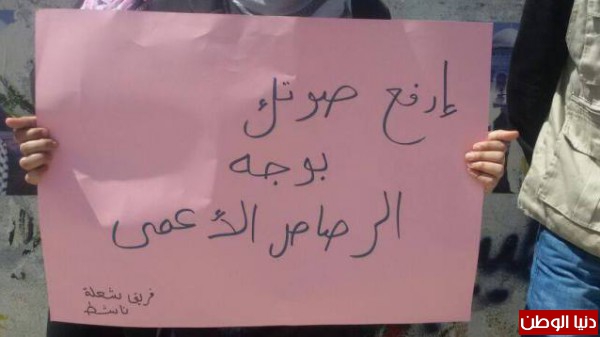 إرفع صوتك
بوجه
الرصاص الأعمى
فريق شعلة
ناشط
دنيا الوطن